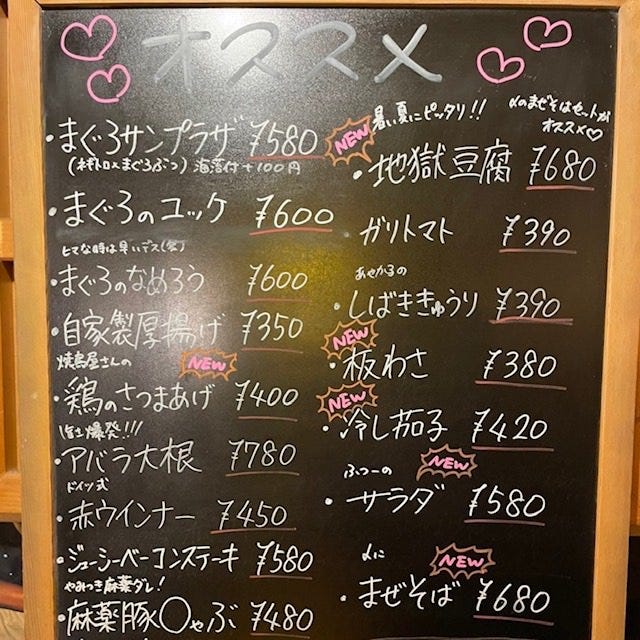 オススメ
・まぐろサンプラザ ¥580
(ネギトロ×まぐろぶつ) 海苔付+100円
・まぐろのユッケ ¥600
ヒマな時は早いデス(笑)
・まぐろのなめろう ¥600
・自家製厚揚げ ¥350
焼鳥屋さんの NEW
・鶏のさつまあげ ¥400
爆発!!!
・アバラ大根 ¥780
ドイツ式
・赤ウインナー ¥450
・ジューシーベーコンステーキ ¥580
やみつき麻薬ダレ!
・麻薬豚〇ゃぶ ¥480
暑い夏にピッタリ!!
のまぜそばセットが
オススメ♡
NEW
・地獄豆腐 ¥680
ガリトマト ¥390
あせかるの
・しばききゅうり ¥390
NEW
・板わさ ¥380
NEW
・冷し茄子 ¥420
ふつーの NEW
・サラダ ¥580
〆に NEW
・まぜそば ¥680